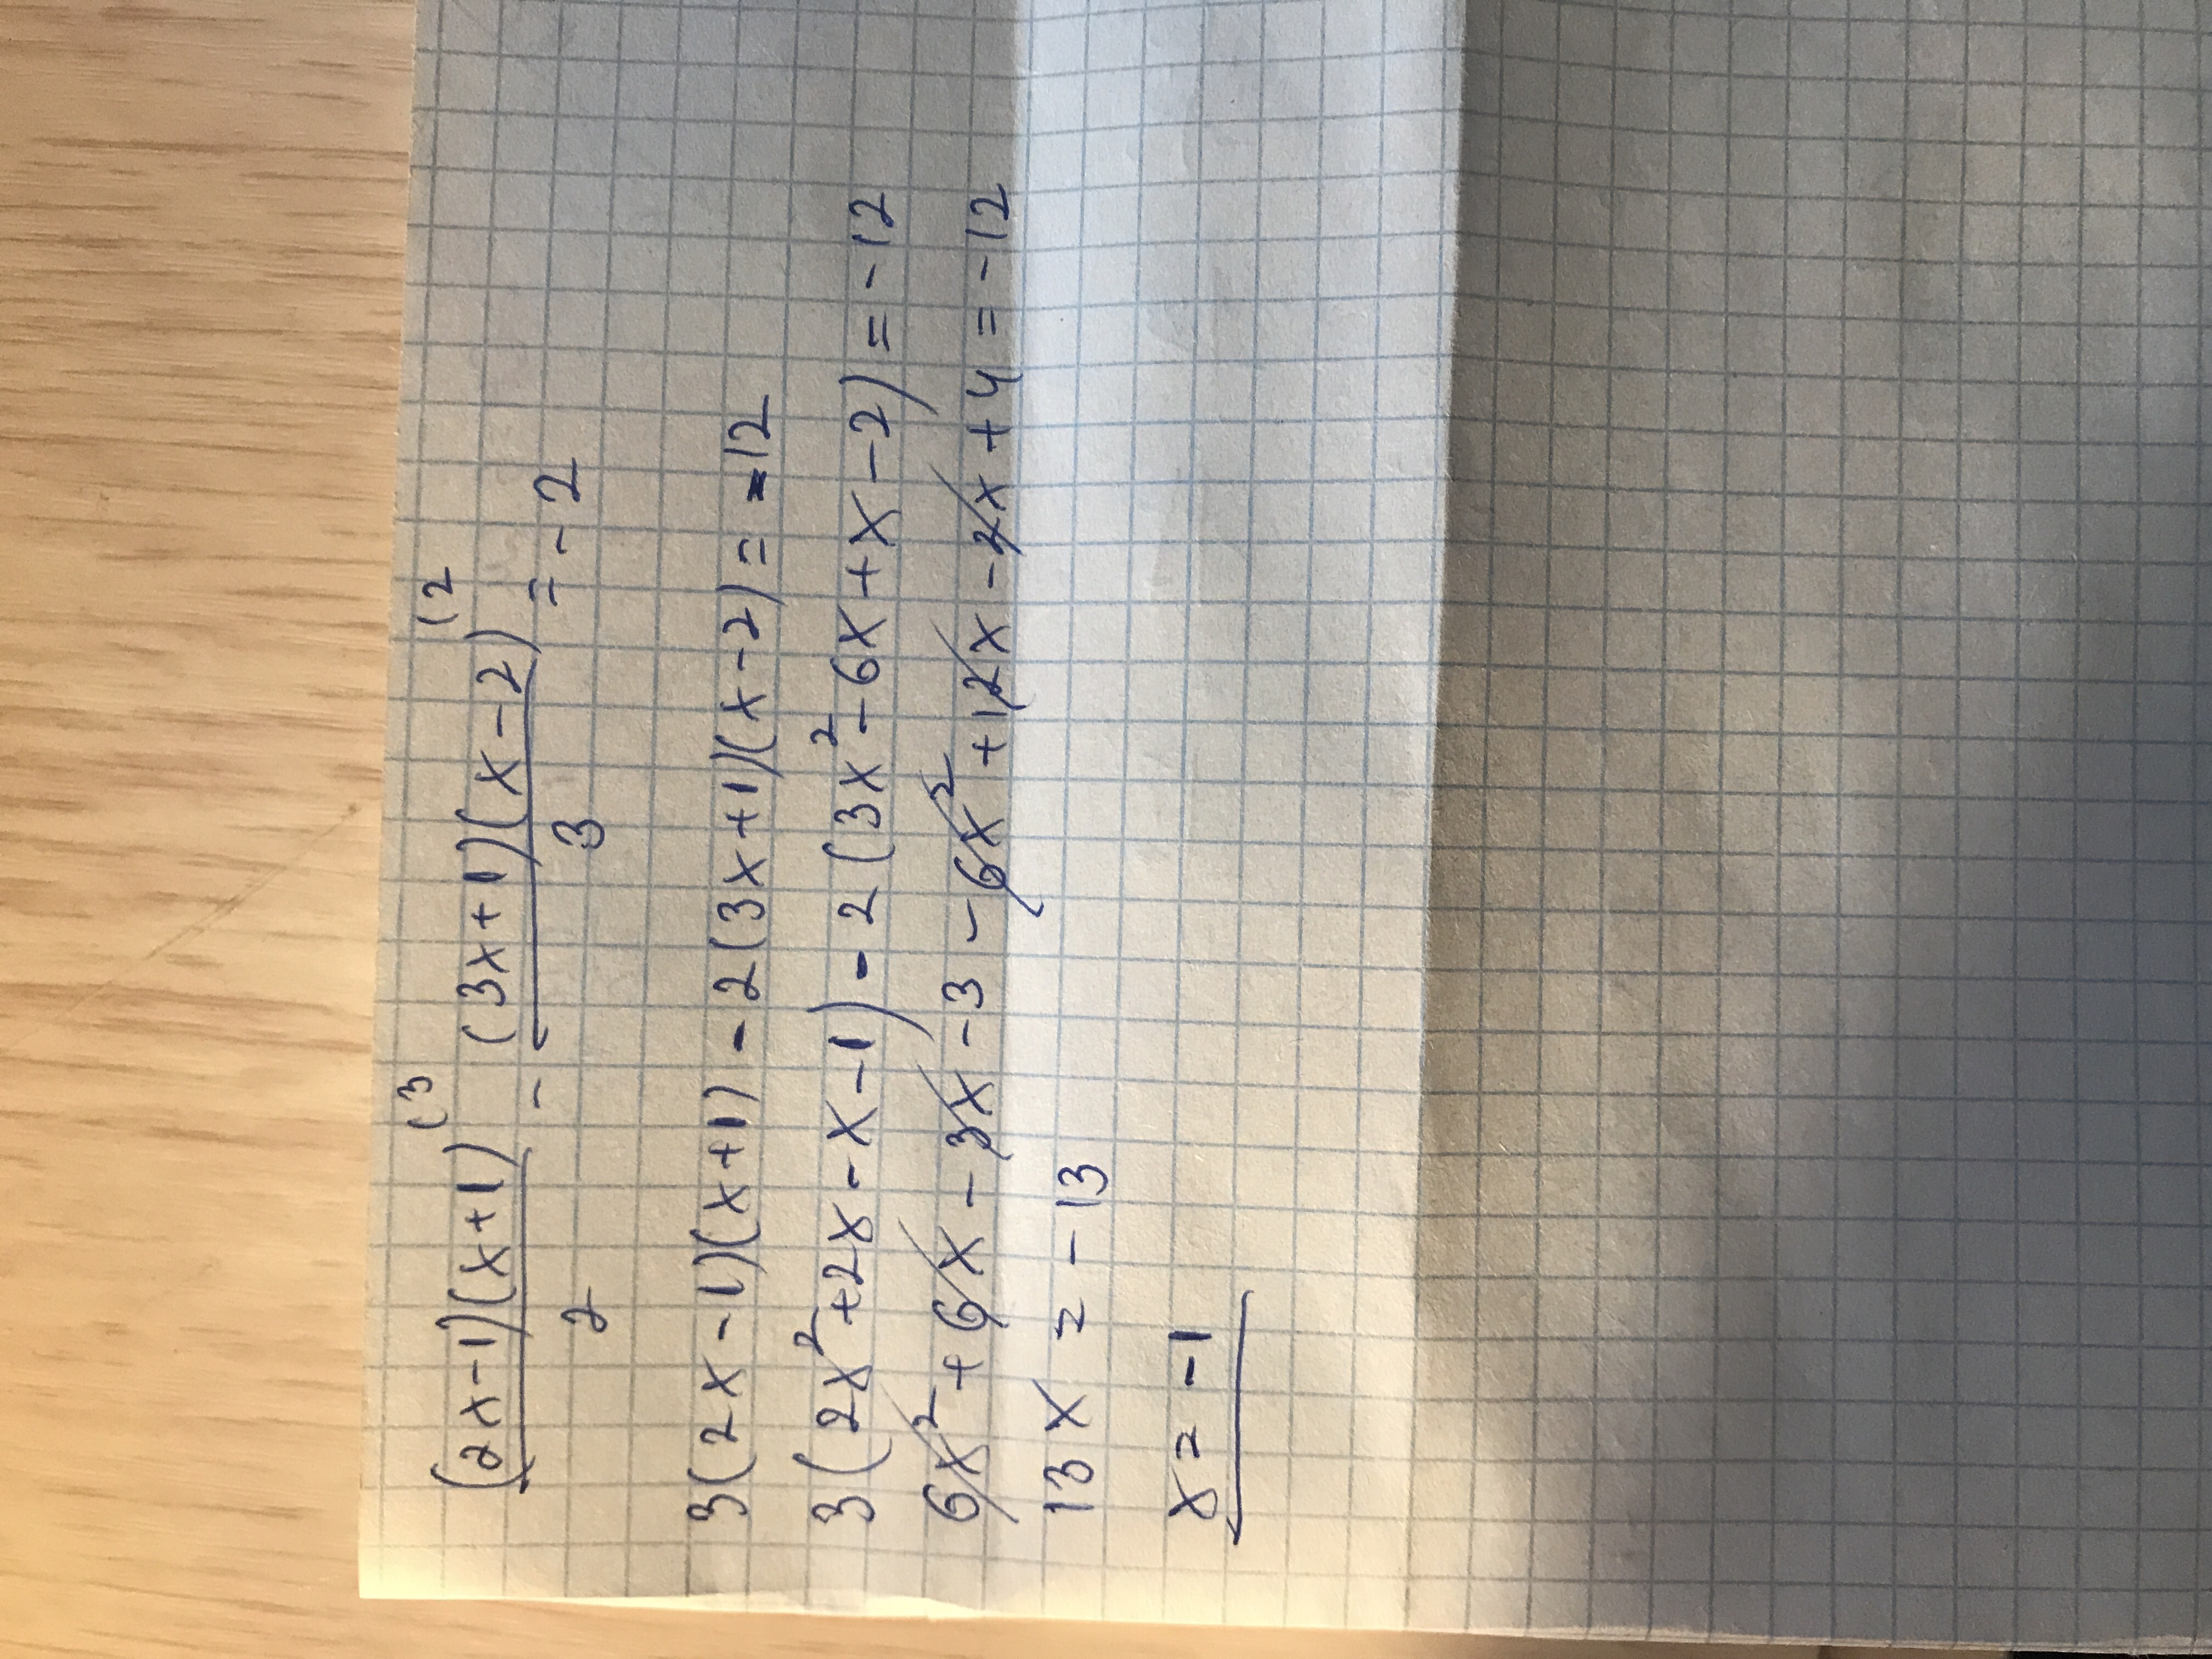 (2x-1)(x+1)⁽³/2 - (3x+1)(x-2)⁽²/3 = -2
3(2x-1)(x+1) - 2(3x+1)(x-2) = -12
3(2x²+2x-x-1) - 2(3x²-6x+x-2) = -12
6x²+6x-3x-3-6x²+12x-2x+4=-12
13x = -13
x = -1